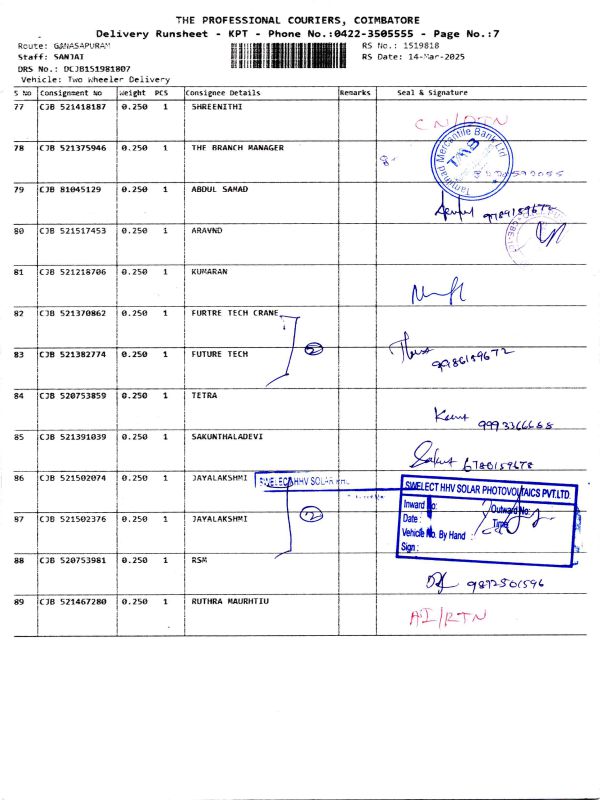 THE PROFESSIONAL COURIERS, COIMBATORE
Delivery Runsheet - KPT - Phone No.:0422-3505555 - Page No.:7
Route: GANASAPURAM
RS No.: 1519818
Staff: SANJAI
RS Date: 14-Mar-2025
DRS No.: DCJB151981807
Vehicle: Two Wheeler Delivery
S No Consignment No Weight PCS Consignee Details Remarks Seal & Signature
77 CJB 521418187 0.250 1 SHREENITHI
CN/RTN
78 CJB 521375946 0.250 1 THE BRANCH MANAGER
Tamilnad Mercantile Bank Ltd
TMB
79 CJB 81045129 0.250 1 ABDUL SAMAD
9789159672
80 CJB 521517453 0.250 1 ARAVND
81 CJB 521218706 0.250 1 KUMARAN
82 CJB 521370862 0.250 1 FURTRE TECH CRANE
2
83 CJB 521382774 0.250 1 FUTURE TECH
9786159672
84 CJB 520753859 0.250 1 TETRA
9993366668
85 CJB 521391039 0.250 1 SAKUNTHALADEVI
6780159678
86 CJB 521502074 0.250 1 JAYALAKSHMI SWELECT HHV SOLAR
SWELECT HHV SOLAR PHOTOVOLTAICS PVT.LTD.
Inward No: Outward No:
87 CJB 521502376 0.250 1 JAYALAKSHMI 2
Date : Time
Vehicle No. By Hand :
Sign :
88 CJB 520753981 0.250 1 RSM
9872501596
89 CJB 521467280 0.250 1 RUTHRA MAURHTIU
AI/RTN